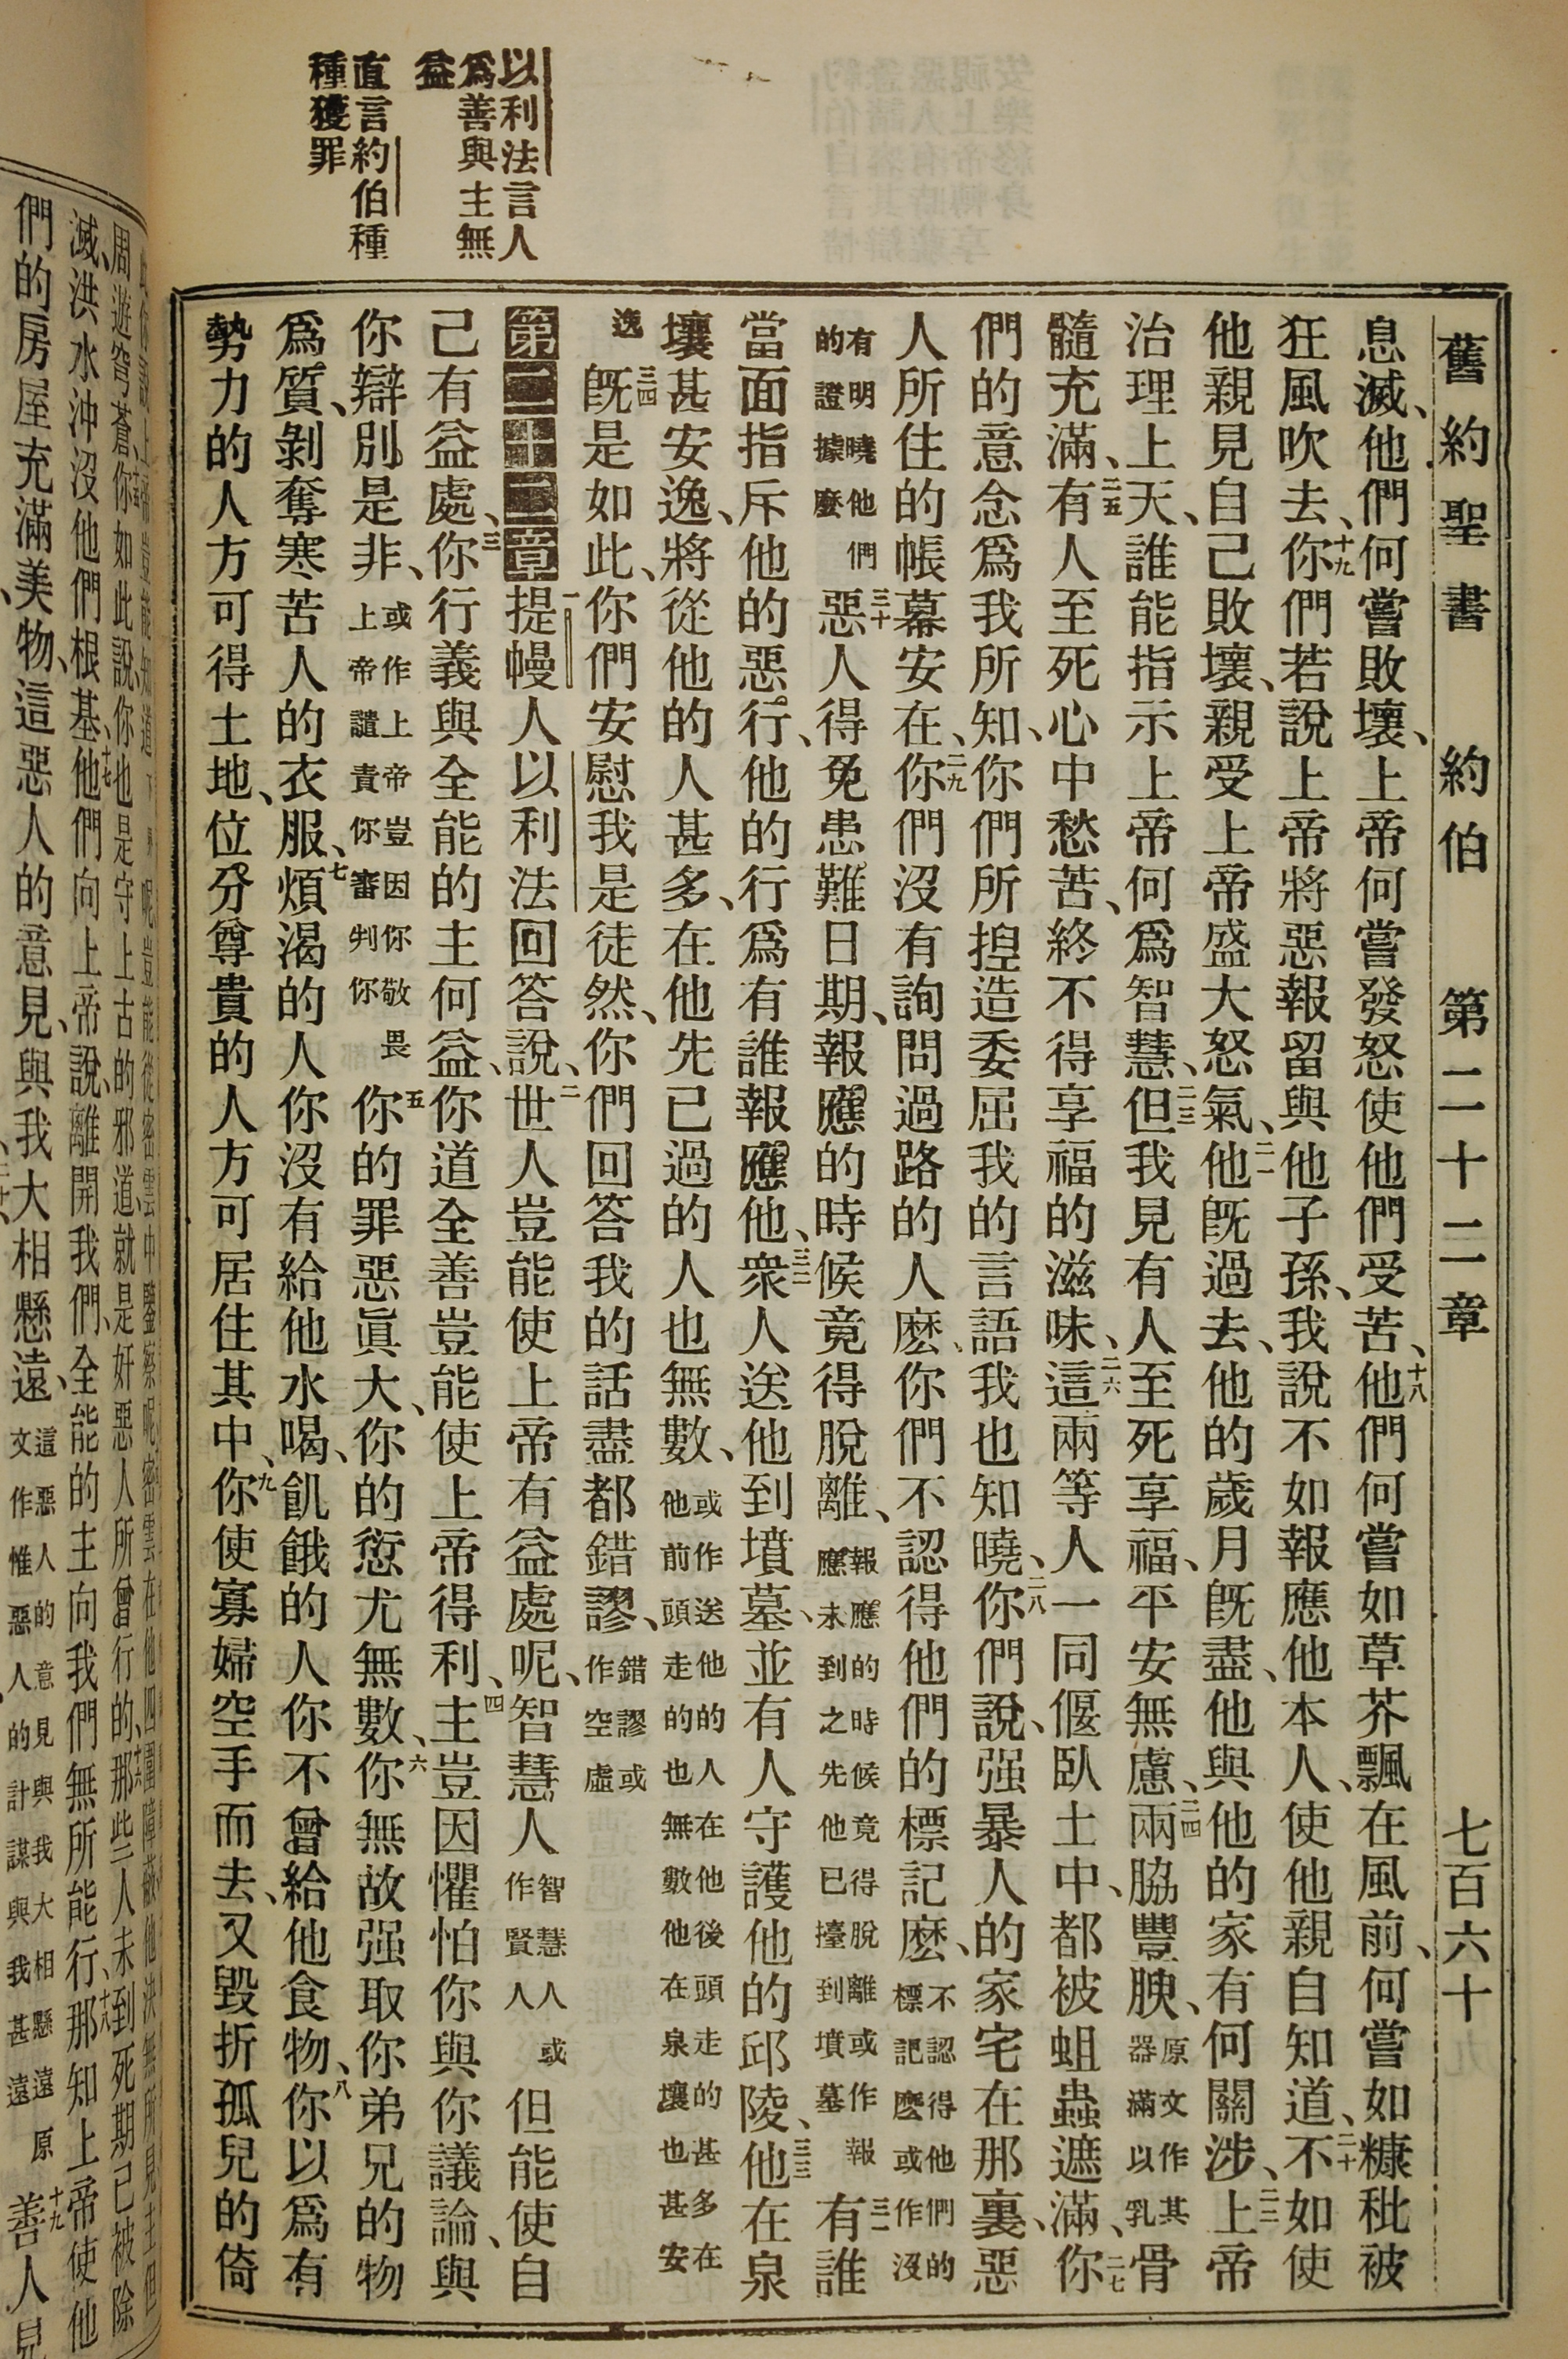 舊約聖書 約伯 第二十二章 七百六十
以利法言人
爲善與主無
益
直言約伯種
種獲罪
息滅、他們何嘗敗壞、上帝何嘗發怒使他們受苦、十八他們何嘗如草芥飄在風前、何嘗如糠秕被
狂風吹去、十九你們若說上帝將惡報留與他子孫、我說不如報應他本人、使他親自知道、二十不如使
他親見自己敗壞、親受上帝盛大怒氣、二一他旣過去、他的歲月旣盡、他與他的家有何關涉、二二上帝
治理上天、誰能指示上帝何爲智慧、二三但我見有人至死享福、平安無慮、二四兩脇豐腴、原文作其器滿以乳骨
髓充滿、二五有人至死心中愁苦、終不得享福的滋味、二六這兩等人一同偃臥土中、都被蛆蟲遮滿、二七你
們的意念爲我所知、你們所揑造委屈我的言語我也知曉、二八你們說、强暴人的家宅在那裏、惡
人所住的帳幕安在、二九你們沒有詢問過路的人麽、你們不認得他們的標記麽、不認得他們的標記麽或作沒
有明曉他們的證據麽三十惡人得免患難日期、報應的時候竟得脫離、報應的時候竟得脫離或作報應未到之先他已擡到墳墓三一有誰
當面指斥他的惡行、他的行爲有誰報應他、三二衆人送他到墳墓、並有人守護他的邱陵、三三他在泉
壤甚安逸、將從他的人甚多、在他先已過的人也無數、或作送他的人在他後頭走的甚多在他前頭走的也無數他在泉壤也甚安
逸三四旣是如此、你們安慰我是徒然、你們回答我的話盡都錯謬、錯謬或作空虛
第二十二章一提幔人以利法回答說、二世人豈能使上帝有益處呢、智慧人智慧人或作賢人但能使自
己有益處、三你行義與全能的主何益、你道全善豈能使上帝得利、四主豈因懼怕你與你議論、與
你辯別是非、或作上帝豈因你敬畏上帝譴責你審判你五你的罪惡眞大、你的愆尤無數、六你無故强取你弟兄的物
爲質、剝奪寒苦人的衣服、七煩渴的人你沒有給他水喝、飢餓的人你不曾給他食物、八你以爲有
勢力的人方可得土地、位分尊貴的人方可居住其中、九你使寡婦空手而去、又毀折孤兒的倚
滅、洪水沖沒他們根基、十七他們向上帝說、離開我們、全能的主向我們無所能行、十八那知上帝使他
們的房屋充滿美物、這惡人的意見、與我大相懸遠、這惡人的意見與我大相懸遠原文作惟惡人的計謀與我甚遠十九善人見